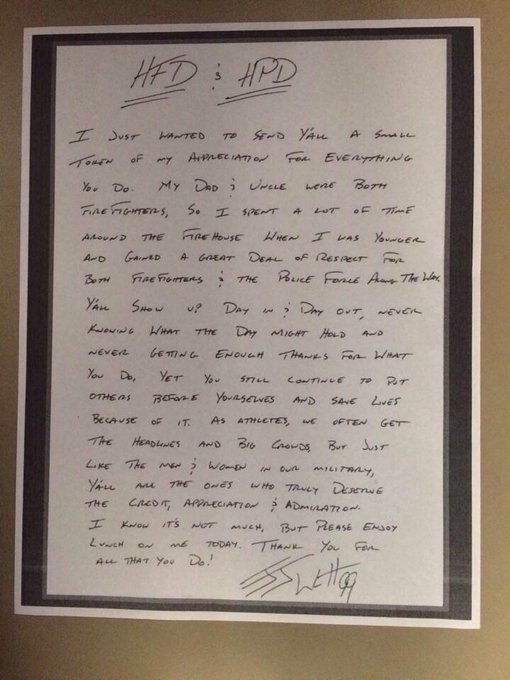 HFD & HPD
I JUST WANTED TO SEND Y'ALL A SMALL
TOKEN OF MY APPRECIATION FOR EVERYTHING
YOU DO. MY DAD & UNCLE WERE BOTH
FIREFIGHTERS, SO I SPENT A LOT OF TIME
AROUND THE FIREHOUSE WHEN I WAS YOUNGER
AND GAINED A GREAT DEAL OF RESPECT FOR
BOTH FIREFIGHTERS & THE POLICE FORCE ALONG THE WAY.
Y'ALL SHOW UP DAY IN & DAY OUT, NEVER
KNOWING WHAT THE DAY MIGHT HOLD AND
NEVER GETTING ENOUGH THANKS FOR WHAT
YOU DO, YET YOU STILL CONTINUE TO PUT
OTHERS BEFORE YOURSELVES AND SAVE LIVES
BECAUSE OF IT. AS ATHLETES, WE OFTEN GET
THE HEADLINES AND BIG CROWDS, BUT JUST
LIKE THE MEN & WOMEN IN OUR MILITARY,
Y'ALL ARE THE ONES WHO TRULY DESERVE
THE CREDIT, APPRECIATION & ADMIRATION.
I KNOW IT'S NOT MUCH, BUT PLEASE ENJOY
LUNCH ON ME TODAY. THANK YOU FOR
ALL THAT YOU DO!
JJ Watt 99